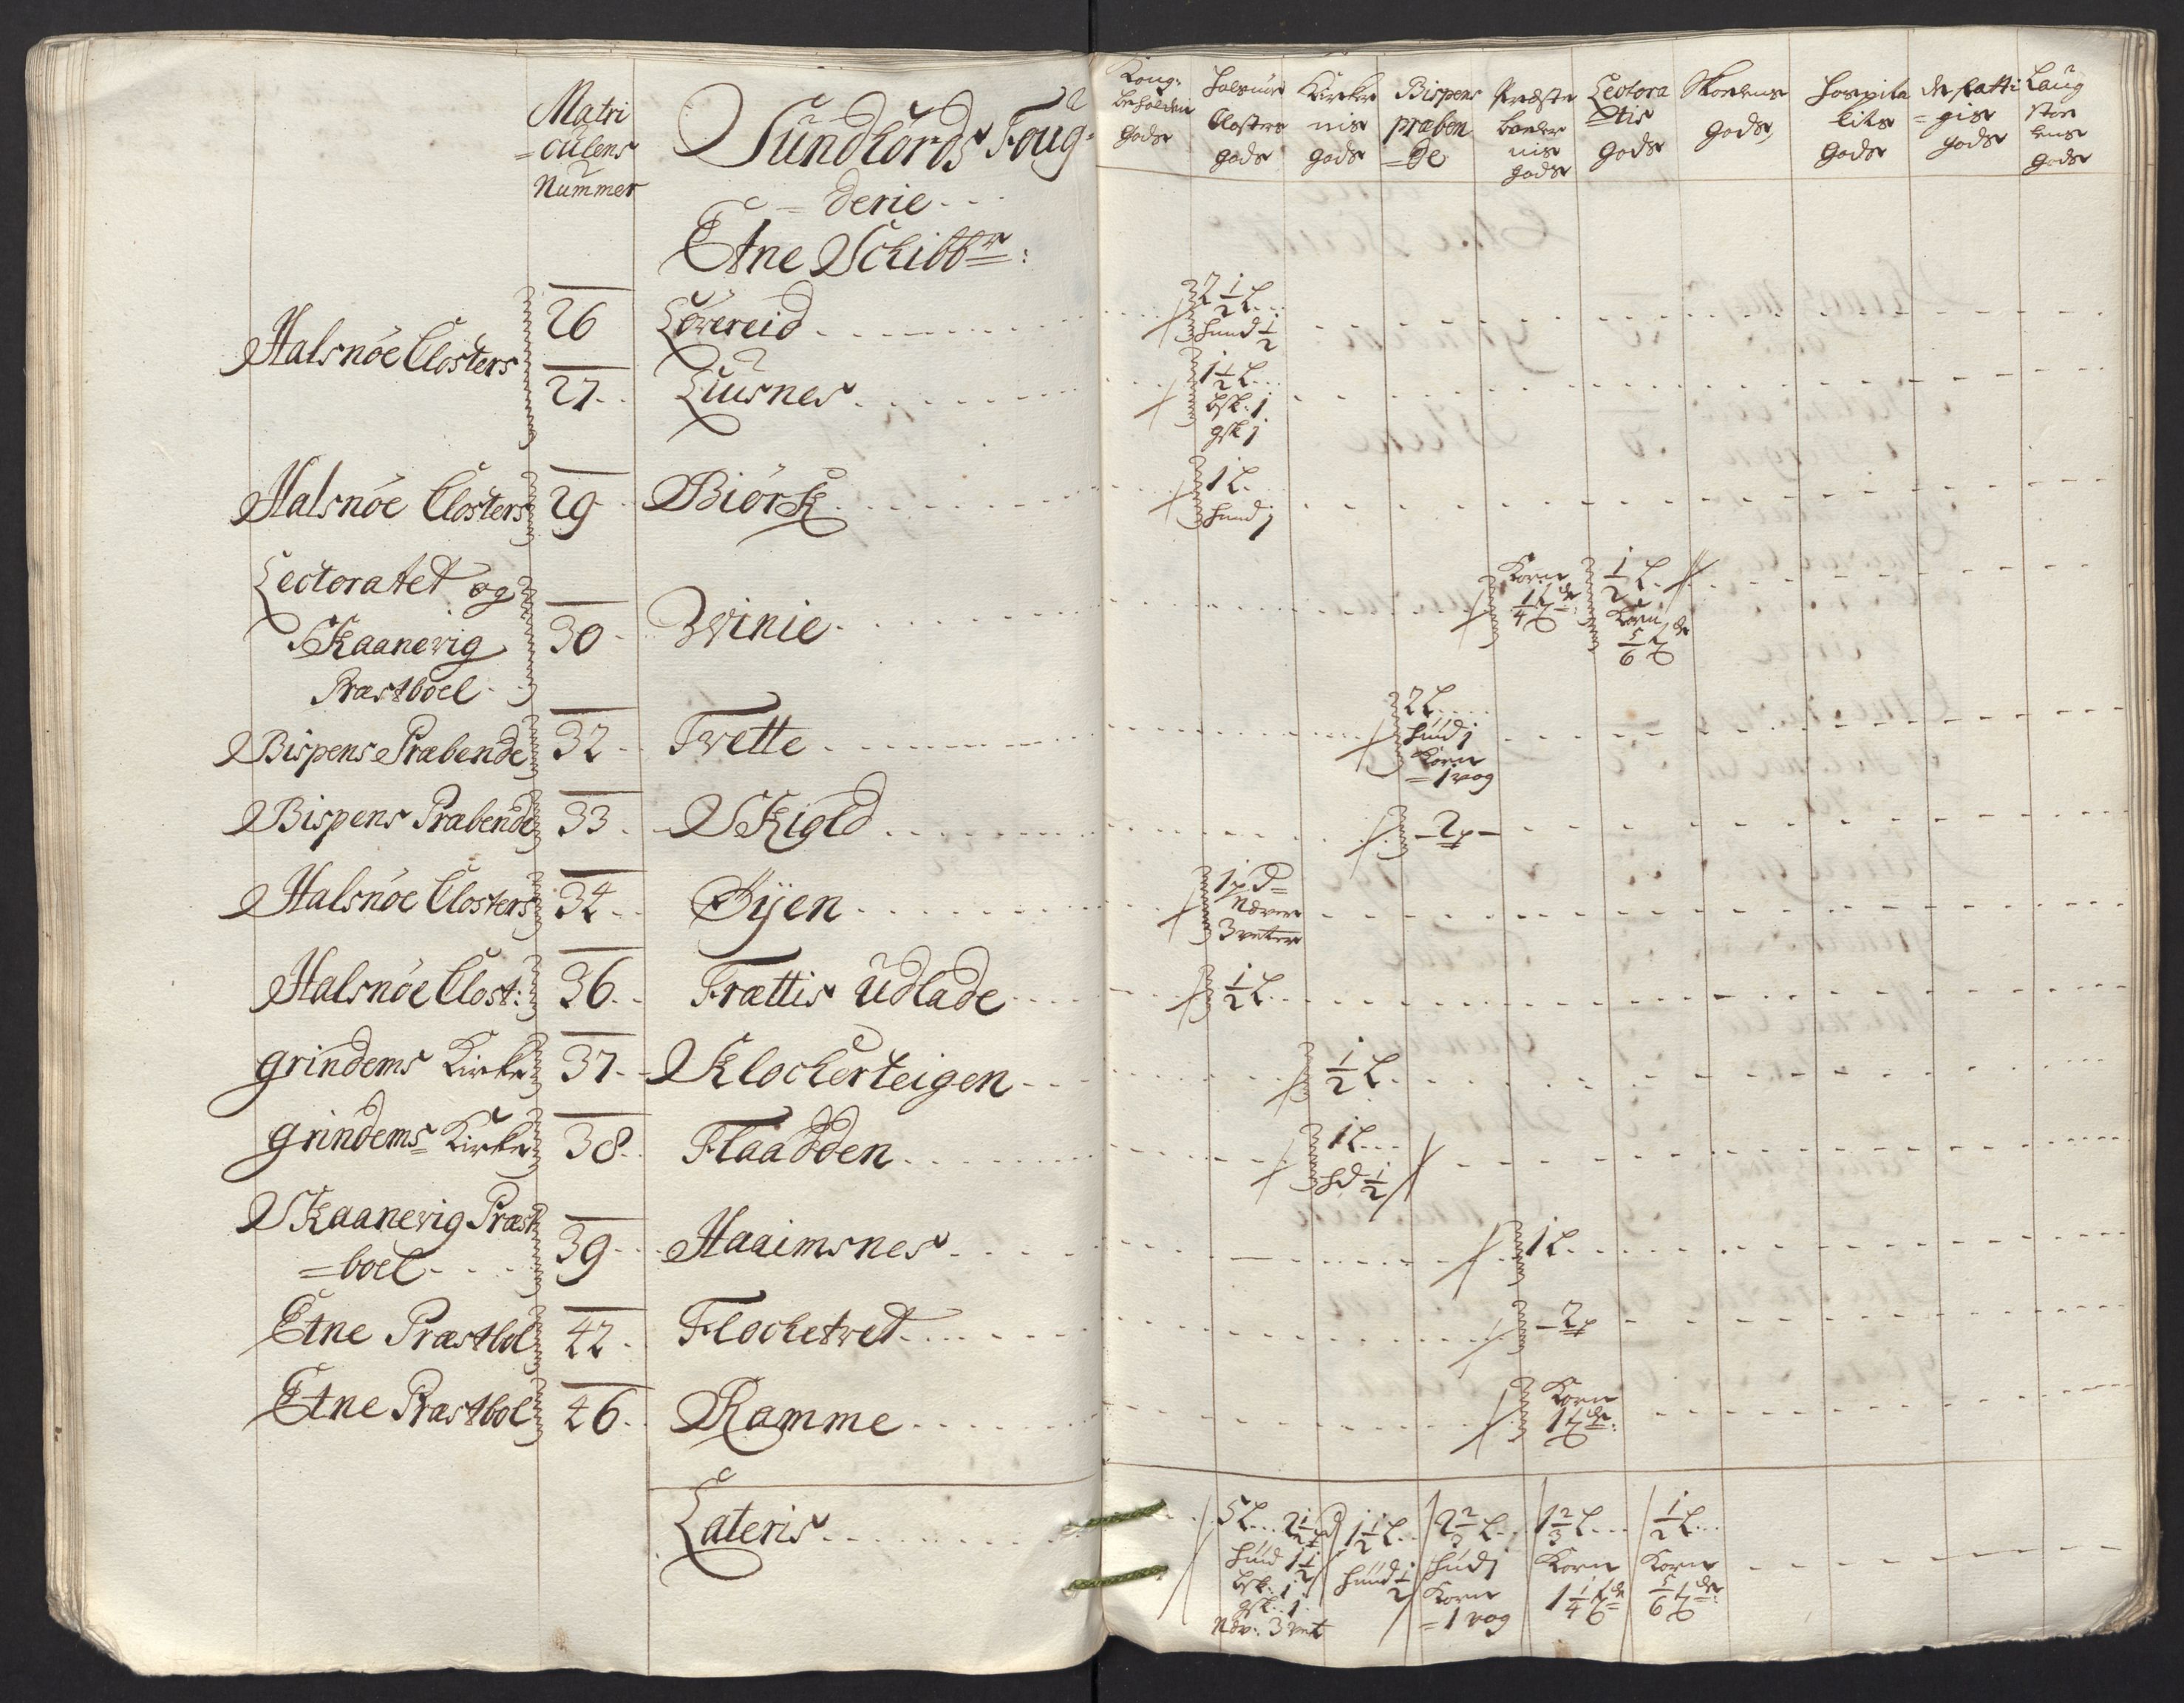 Matri
=culens
Nummer
Sundhords Foug=
=derie
Etne Schibbr:
Kong:
beholden
Gods
Halsnöe
Closters
gods
Kirker
nis
gods
Bispens
præben
=de
Præste
boeler
nis
gods
Lectora
tis
gods
Skoelens
gods
Hospita
lits
Gods
de fatti
=gis
gods
Laug
stoe
lens
gods
Halsnöe Closters
26 Löwereid 2 1/2 L
Hund 1/2
27 Liusnes 1 1/2 L
bsk: 1
gsk 1
Halsnöe Closters 29 Biörk 1 L
Hund 1
Lectoratet og
Skaanevig
Præstboel
30 Zvinie
Korn
1/4
1/2 L
Korn
5/6
Bispens Præbende 32 Tvette 2 L
Hud 1
Korn
=1 vog
Bispens Præbende 33 Skiold 2 p
Halsnöe Closters 34 Øijen 1 pd
Næver
3 vetter
Halsnöe Clost: 36 Frættis Udlade 1/2 L
grindems Kirke 37 Klockerteigen 1/2 L
grindems Kirke 38 Flaadden 1 L
Hd 1/2
Skaanevig Præst
=boel
39 Haaimsnes 1 L
Etne Præstbol 42 Flochetvet 2 p
Etne Præstbol 46 Ramme
Korn
1
Lateris
5 L 2 1/2
Hud 1 1/2
bsk: 1
gsk: 1
Næv: 3 vet
1 1/2 L
Hund 1/2
2 2/3 L
Hud 1
Korn
=1 vog
1 2/3 L
Korn
1 1/4
1/2 L
Korn
5/6